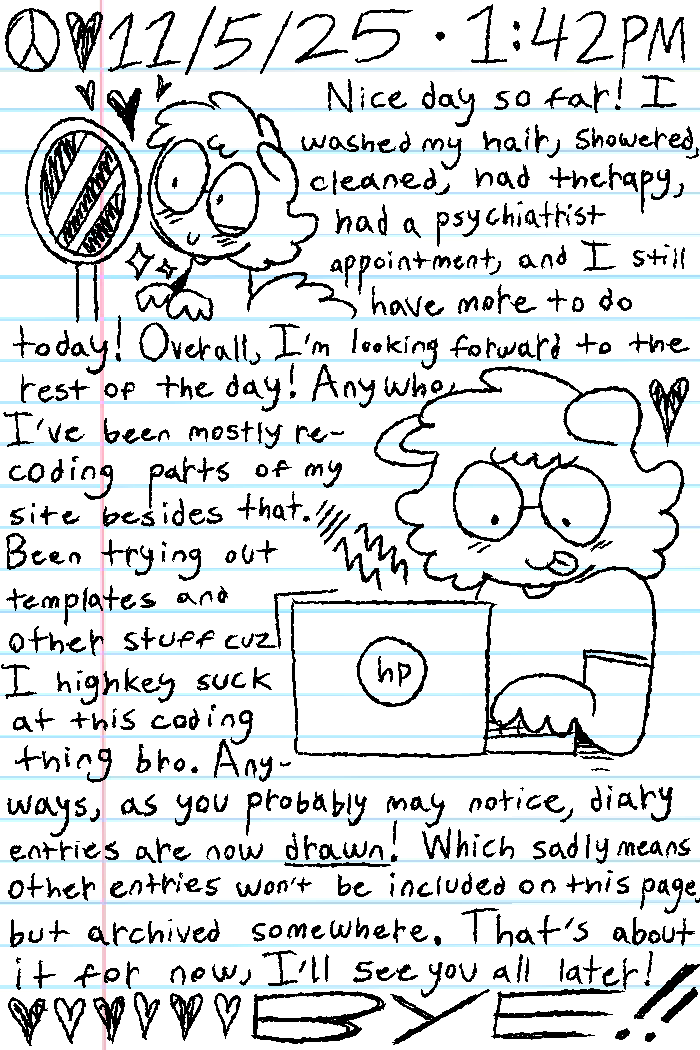 11/5/25 · 1:42PM
Nice day so far! I
washed my hair, showered,
cleaned, had therapy,
had a psychiatrist
appointment, and I still
have more to do
today! Overall, I'm looking forward to the
rest of the day! Anywho,
I've been mostly re-
coding parts of my
site besides that.
Been trying out
templates and
other stuff cuz
I highkey suck
at this coding
thing bro. Any-
hp
ways, as you probably may notice, diary
entries are now drawn! Which sadly means
other entries won't be included on this page,
but archived somewhere. That's about
it for now, I'll see you all later!
BYE!!